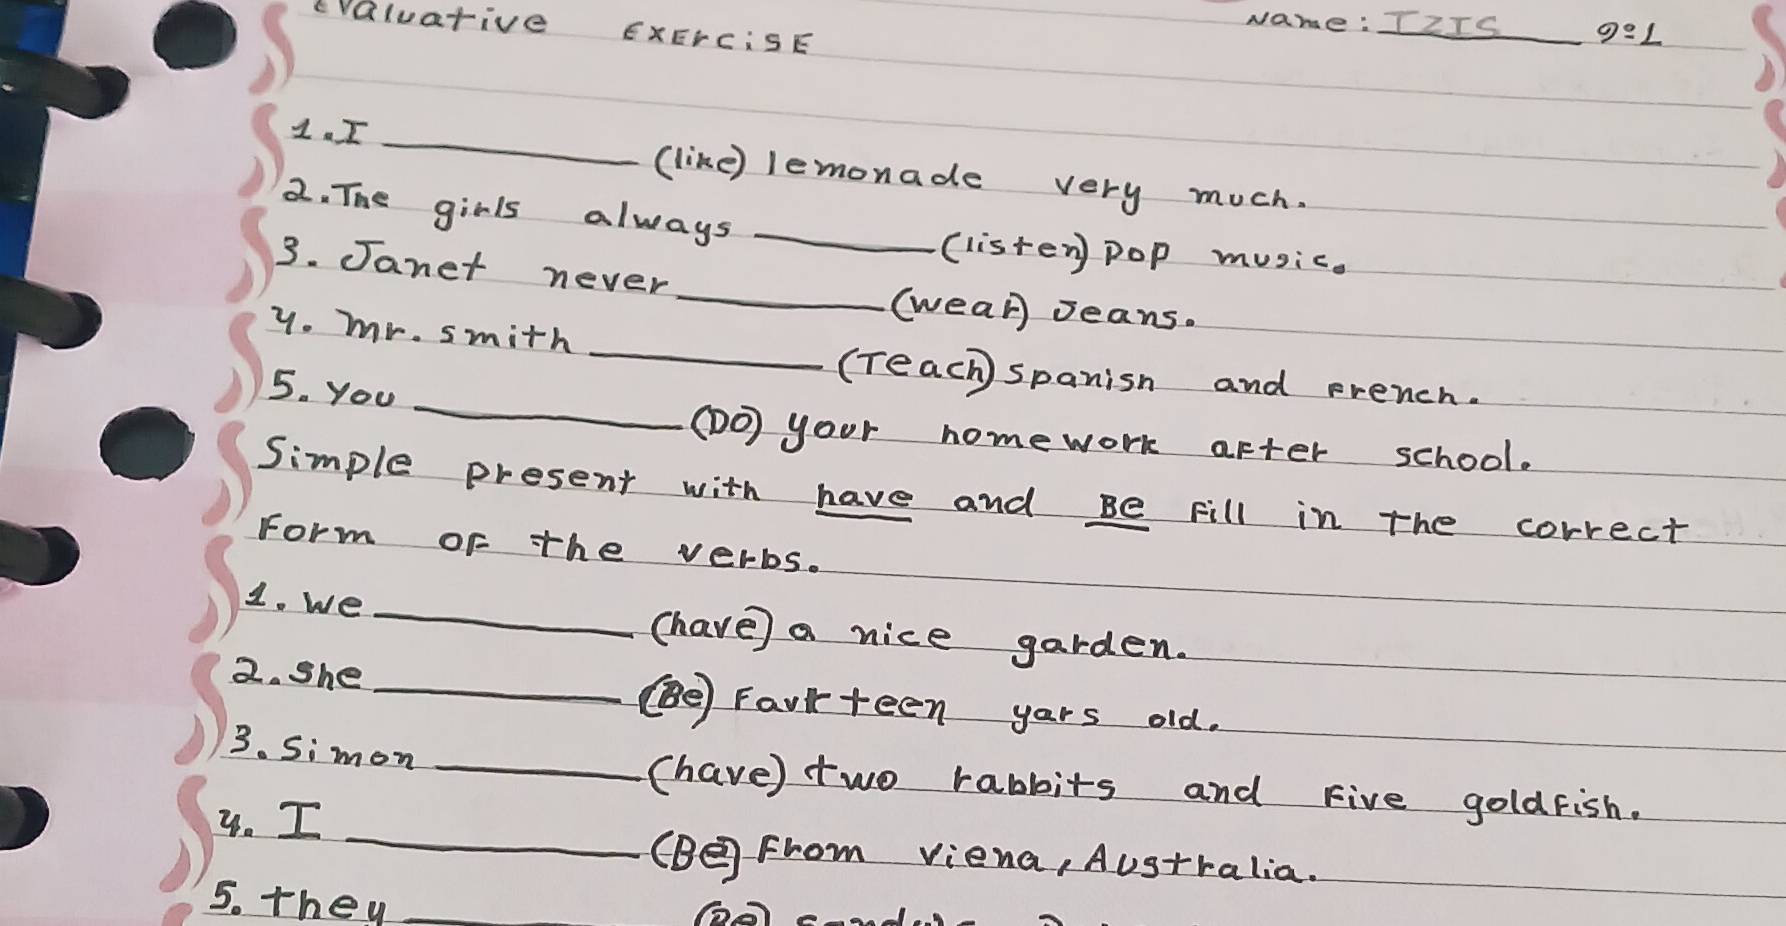 Evaluative Exercise Name: IZIS 9º1
1. I ________ (like) lemonade very much.
2. The girls always ________ (listen) pop music.
3. Janet never ________ (wear) Jeans.
4. Mr. smith ________ (Teach) spanish and French.
5. You ________ (DO) your homework after school.
Simple present with have and Be Fill in the correct
Form of the verbs.
1. We ________ (have) a nice garden.
2. She ________ (Be) teen yars old.
3. Simon ________ (have) two rabbits and Five goldFish.
4. I ________ (Be) From viena, Australia.
5. they ________ (Be)